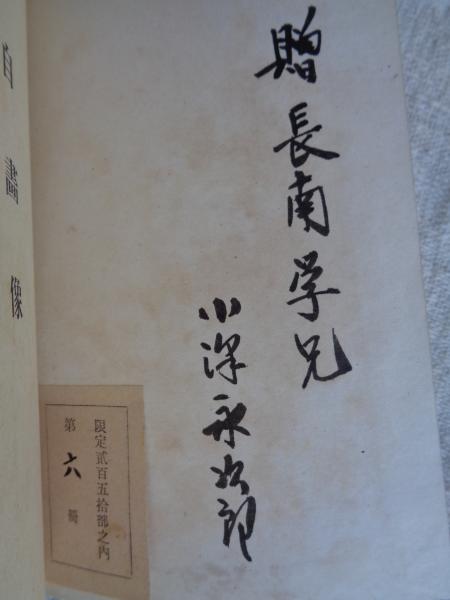 贈長南学兄
小澤永次郎
限定貳百五拾部之内
第六冊
自畫像